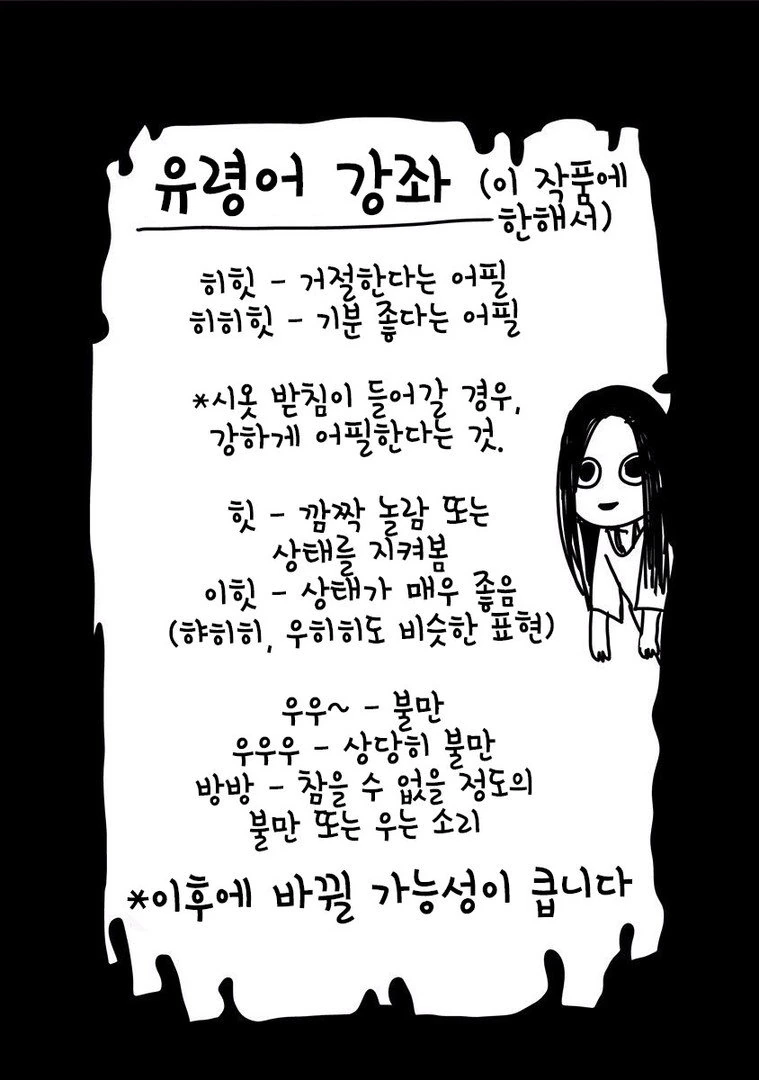 유령어 강좌 (이 작품에
한해서)
히힛 - 거절한다는 어필
히히힛 - 기분 좋다는 어필
*시옷 받침이 들어갈 경우,
강하게 어필한다는 것.
힛 - 깜짝 놀람 또는
상태를 지켜봄
이힛 - 상태가 매우 좋음
(햐히히, 우히히도 비슷한 표현)
우우~ - 불만
우우우 - 상당히 불만
방방 - 참을 수 없을 정도의
불만 또는 우는 소리
*이후에 바뀔 가능성이 큽니다